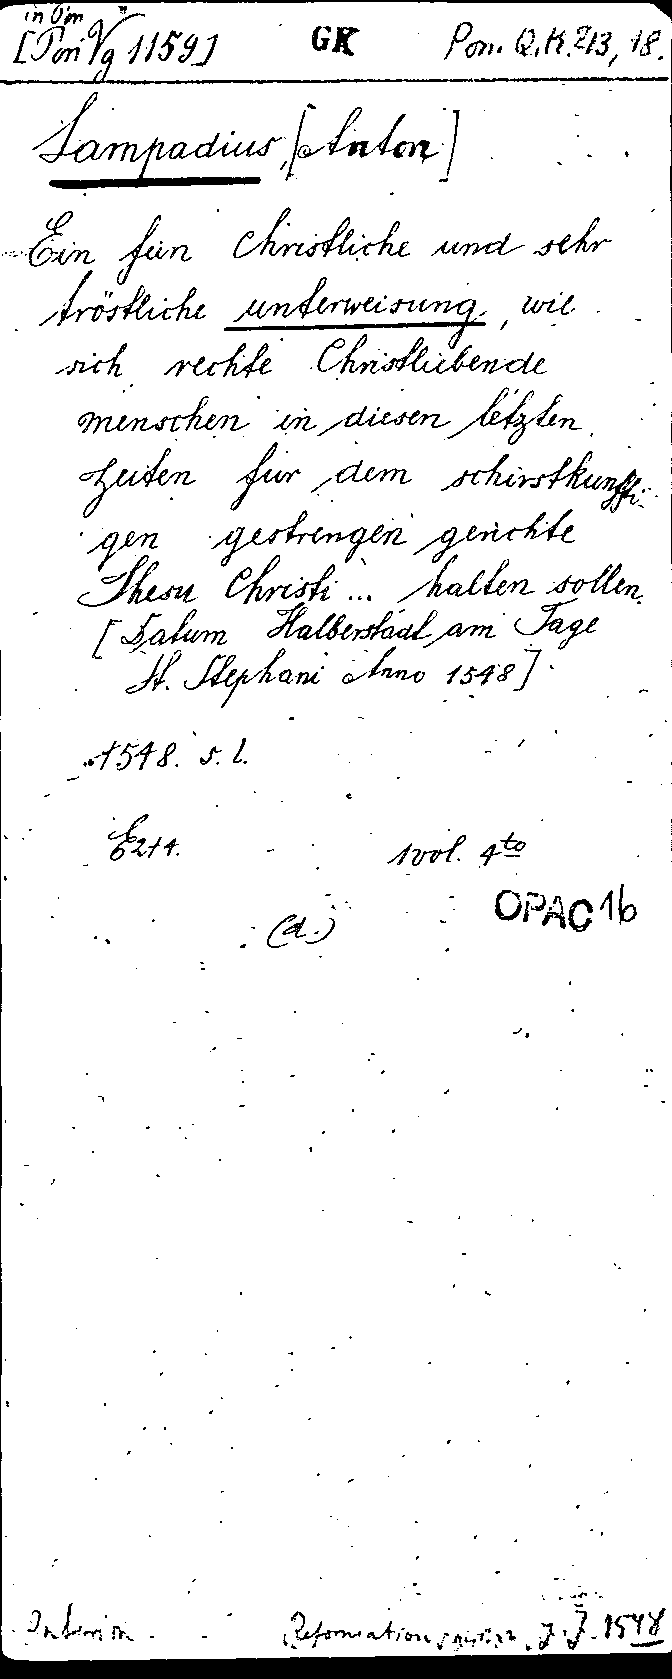 [Pon Vg 1159] GK Pon. Q.K. 213, 18.
Lampadius, [Anton]
Ein fein Christliche und sehr
tröstliche unterweisung, wie
sich rechte Christliebende
menschen in diesen letzten
Zeiten für dem schirstkunffti-
gen gestrengen gerichte
Jhesu Christi ... halten sollen.
[Datum Halberstadt am Tage
St. Stephani Anno 1548]
1548. s. l.
1 vol. 4to
(d.)
OPAC 1b
Interim Reformations J. 1548